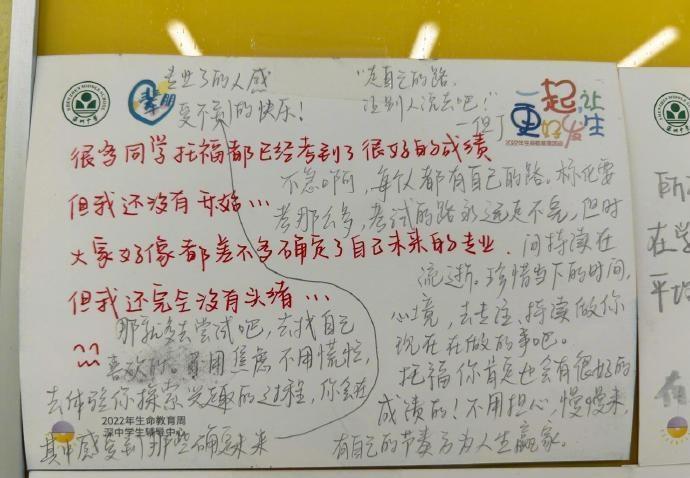 专业了的人感
受不到的快乐！
“走自己的路，
让别人说去吧！”
—但丁
一起,让
更好发生
2022年生命教育周活动
很多同学托福都已经考到了很好的成绩
但我还没有开始…
大家好像都差不多确定了自己未来的专业.
但我还完全没有头绪…
不急啊, 每个人都有自己的路。标化要
考那么多, 考试的路永远走不完, 但时
间持续在
流逝。珍惜当下的时间,
心境, 去专注、持续做你
现在在做的事吧。
托福你肯定也会有很好的
成绩的! 不用担心, 慢慢来,
有自己的节奏方为人生赢家。
那就多去尝试吧, 去找自己
喜欢的。不用焦虑不用慌忙,
去体验你探索兴趣的过程, 你会在
其中感受到那些确定未来
2022年生命教育周
深中学生辅导中心